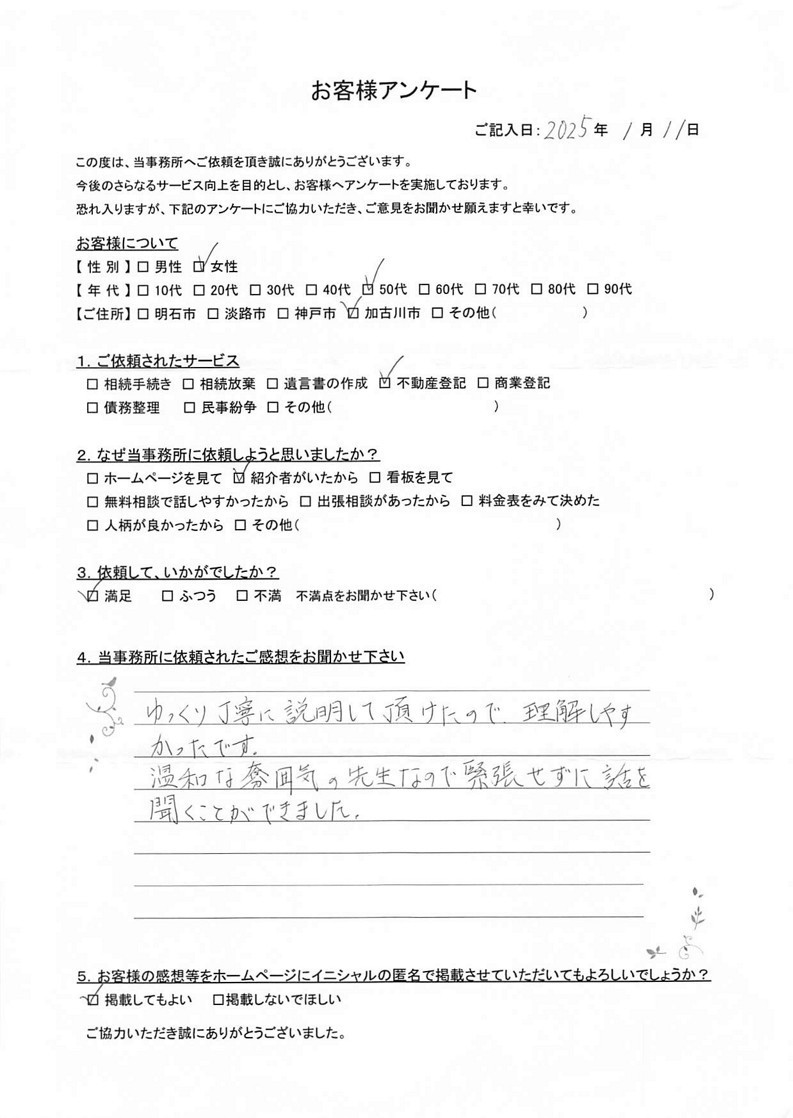 お客様アンケート
ご記入日：2025年 1月11日
この度は、当事務所へご依頼を頂き誠にありがとうございます。
今後のさらなるサービス向上を目的とし、お客様へアンケートを実施しております。
恐れ入りますが、下記のアンケートにご協力いただき、ご意見をお聞かせ願えますと幸いです。
お客様について
【 性 別 】□ 男性 ☑ 女性
【 年 代 】□ 10代 □ 20代 □ 30代 □ 40代 ☑ 50代 □ 60代 □ 70代 □ 80代 □ 90代
【ご住所】□ 明石市 □ 淡路市 □ 神戸市 ☑ 加古川市 □ その他（ ）
1．ご依頼されたサービス
□ 相続手続き □ 相続放棄 □ 遺言書の作成 ☑ 不動産登記 □ 商業登記
□ 債務整理 □ 民事紛争 □ その他（ ）
2．なぜ当事務所に依頼しようと思いましたか？
□ ホームページを見て ☑ 紹介者がいたから □ 看板を見て
□ 無料相談で話しやすかったから □ 出張相談があったから □ 料金表をみて決めた
□ 人柄が良かったから □ その他（ ）
3．依頼して、いかがでしたか？
☑ 満足 □ ふつう □ 不満 不満点をお聞かせ下さい（ ）
4．当事務所に依頼されたご感想をお聞かせ下さい
ゆっくり丁寧に説明して頂けたので、理解しやす
かったです。
温和な雰囲気の先生なので緊張せずに話を
聞くことができました。
5．お客様の感想等をホームページにイニシャルの匿名で掲載させていただいてもよろしいでしょうか？
☑ 掲載してもよい □掲載しないでほしい
ご協力いただき誠にありがとうございました。